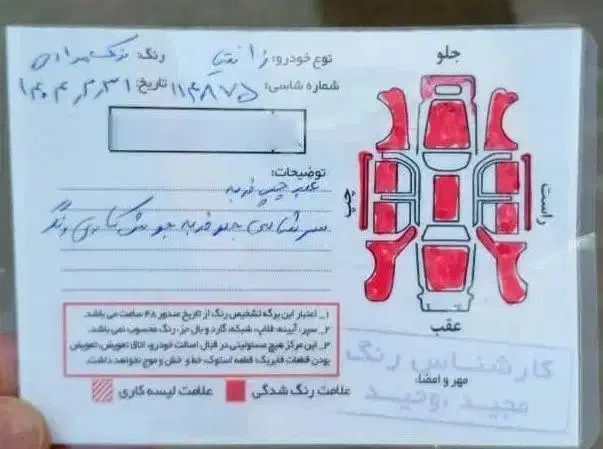 نوع خودرو: زانتیا رنگ:
شماره شاسی: ۱۱۴۸۷۵ تاریخ: ۱۴۰۴٫۳٫۳۱
توضیحات:
عقب چپ ضربه
سر شاسی جلو ضربه جوشکاری رنگ
جلو
چپ
راست
عقب
۱_ اعتبار این برگه تشخیص رنگ از تاریخ صدور ۴۸ ساعت می باشد.
۲_ سپر، آیینه، قلاب، شبکه، گارد و بال جز، رنگ محسوب نمی باشد.
۳_ این مرکز هیچ مسئولیتی در قبال اصالت خودرو، اتاق تعویض، تعویض
بودن قطعات فابریک، قطعه استوک، خط و خش و موج نخواهد داشت.
علامت رنگ شدگی
علامت لیسه گاری
مهر و امضاء:
کارشناس رنگ
مجید . وحید